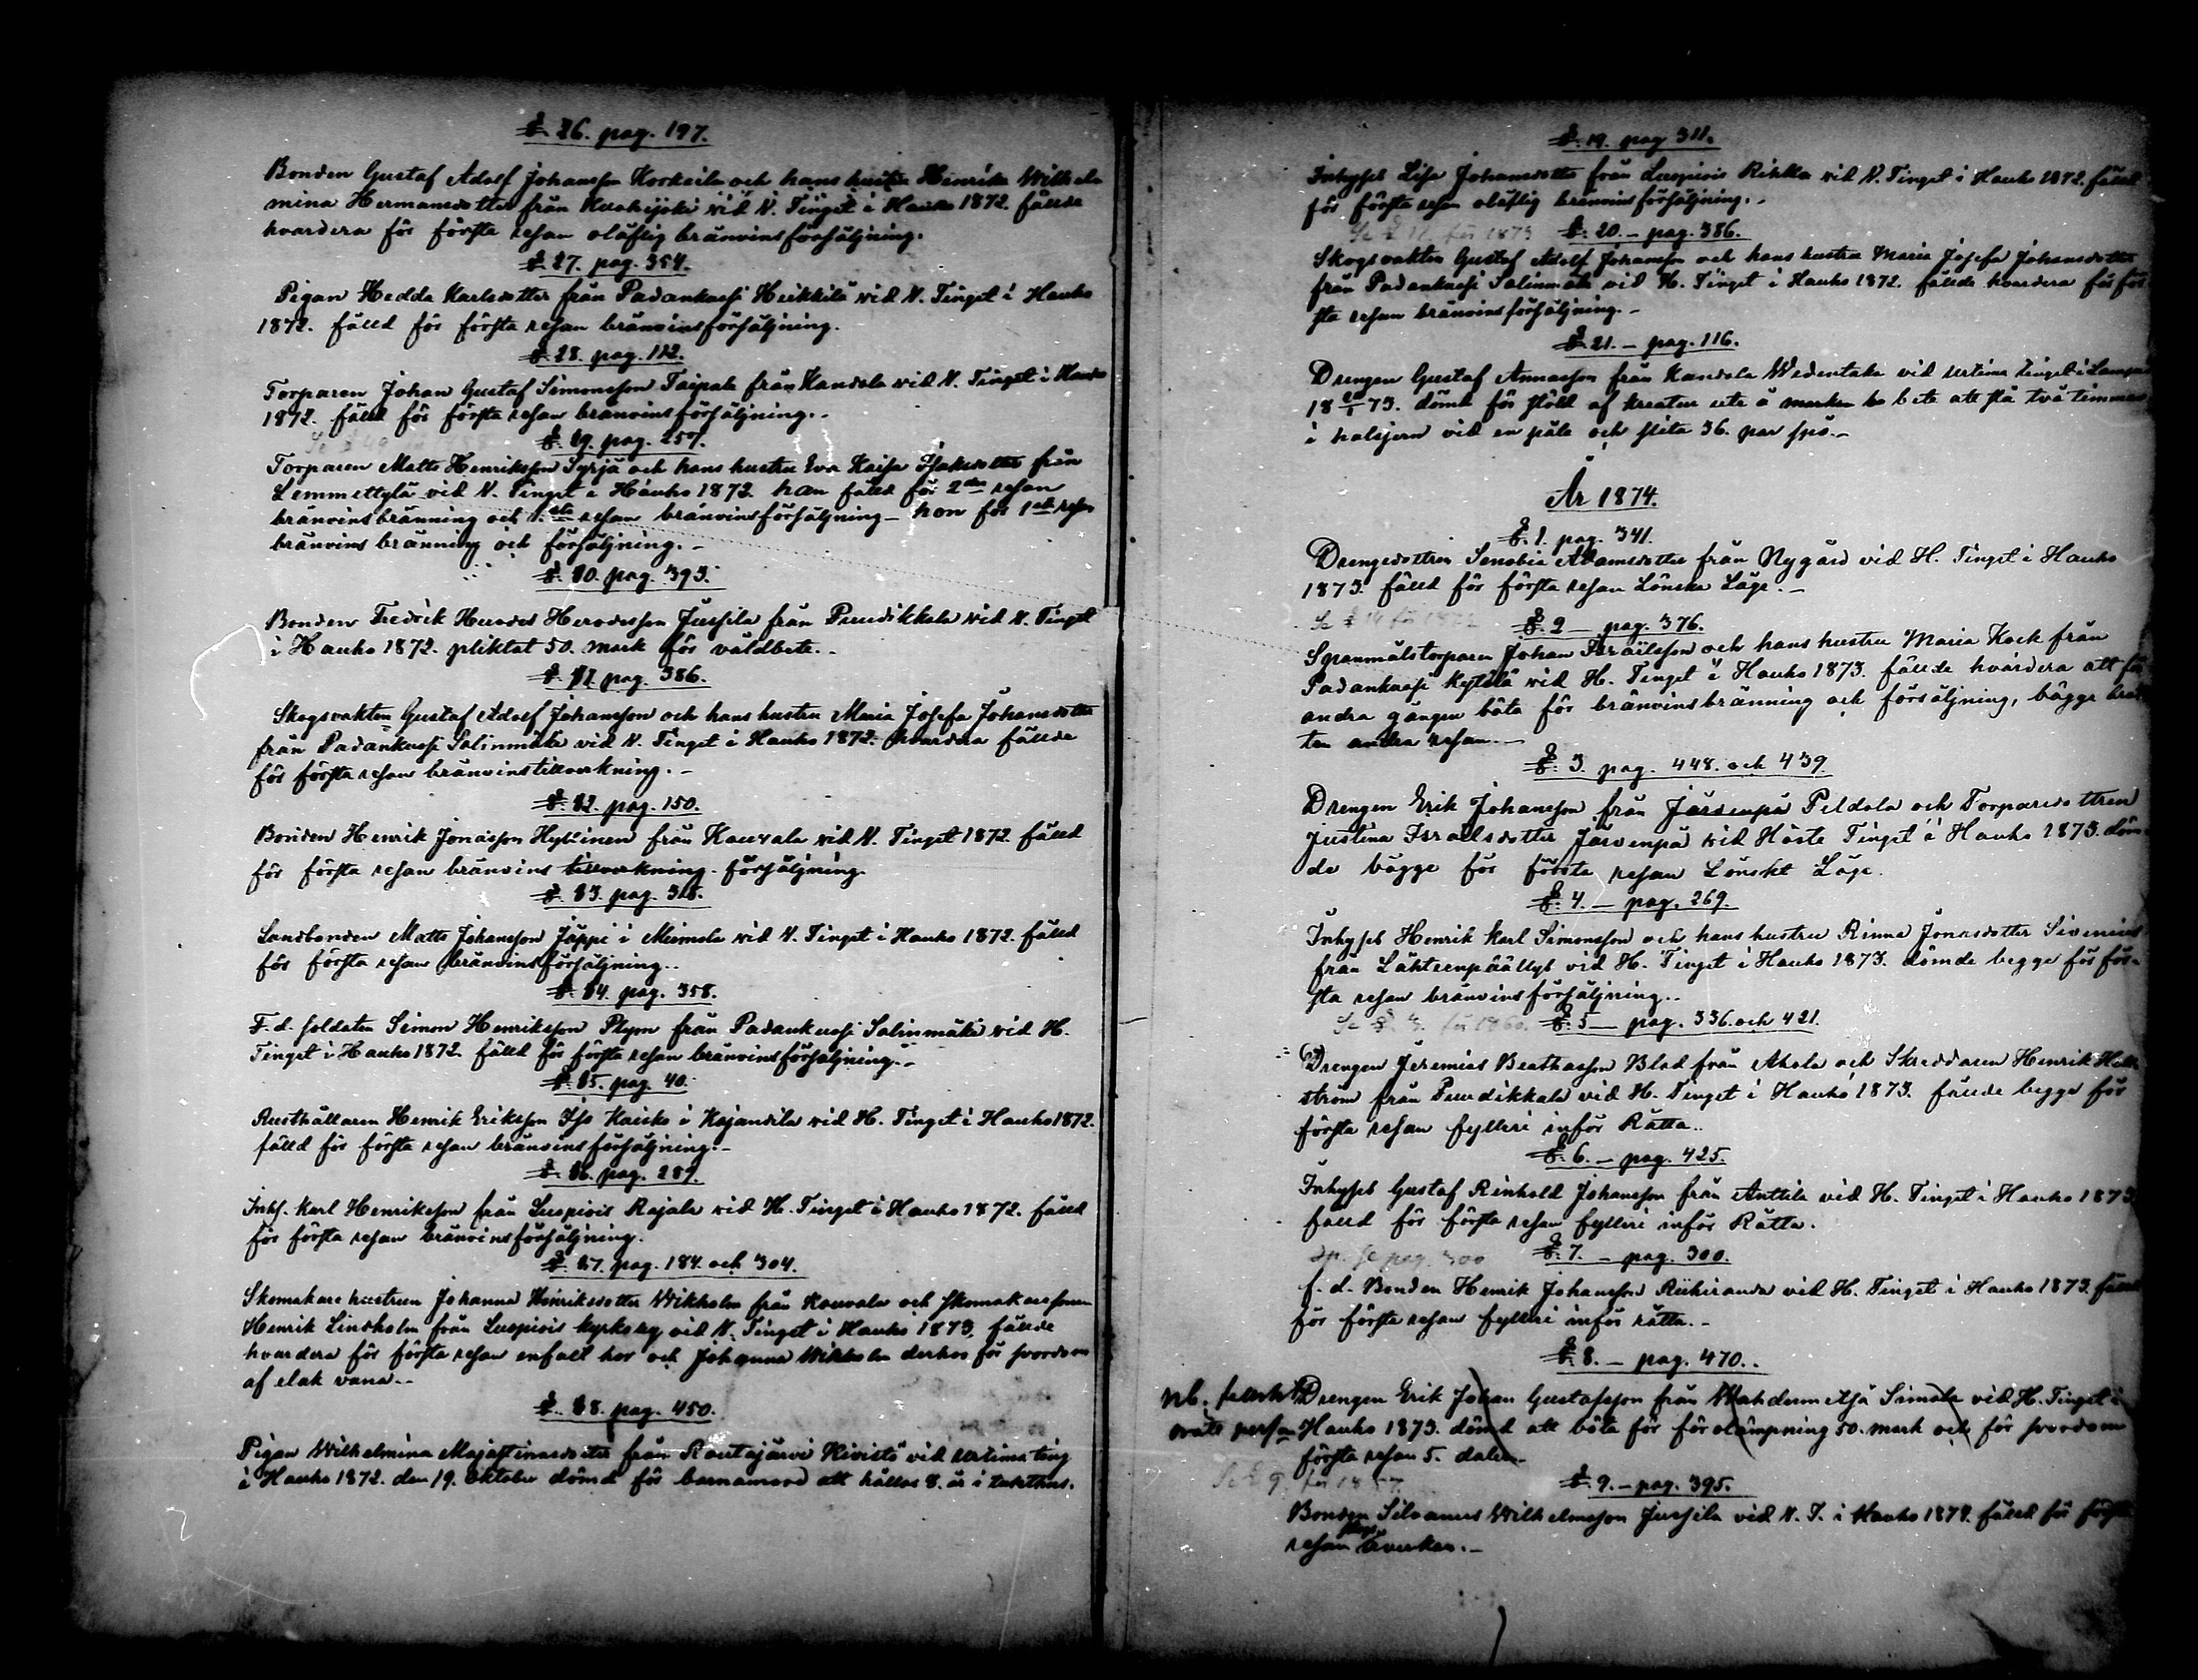 §. 26. pag. 197.
Bonden Gustaf Adolf Johansson Korkeila och hans hustru Henrika Wilhel
mina Hermansdotter från Kuohijoki vid V. Tinget i Hauho 1872. fällde
hvardera för första resan olaflig bränvinsförsäljning.
§. 27. pag. 354.
Pigan Hedda Karlsdotter från Padankoski Heikkilä vid V. Tinget i Hauho
1872. fälld för första resan bränvinsförsäljning.
§. 28. pag. 112.
Torparen Johan Gustaf Simonsson Taipale från Kandola vid V. Tinget i Hauho
1872. fälld för första resan bränvinsförsäljning.-
§. 29. pag. 257.
Torparen Matts Henriksson Syrjä och hans hustru Eva Kaisa Isaksdotter från
Lemmettylä vid V. Tinget i Hauho 1872. han fälld för 2dra resan
bränvinsbränning och 1.sta resan bränvinsförsäljning - hon för 1sta resan
bränvins bränning och försäljning. -
§. 30. pag. 393.
Bonden Fredrik Herodes Herodesson Jussila från Puudikkala vid V. Tinget
i Hauho 1872. pliktat 50. mark för våldbete..
§. 31. pag. 386.
Skogsvakten Gustaf Adolf Johansson och hans hustru Maria Josefa Johansdotter
från Padankoski Salinmäki vid V. Tinget i Hauho 1872. hvardera fällde
för första resan bränvinstillverkning. -
§. 32. pag. 150.
Bonden Henrik Jonasson Hyttinen från Kouvala vid V. Tinget 1872 fälld
för första resan bränvins tillverkning. försäljning.
§. 33. pag. 318.
Landbonden Matts Johansson Jäppi i Meimola vid V. Tinget i Hauho 1872. fälld
för första resan bränvinsförsäljning..
§. 34. pag. 358.
F. d. soldaten Simon Henriksson Plym från Padankoski Salinmäki vid H.
Tinget i Hauho 1872. fälld för första resan bränvinsförsäljning.-
§. 35. pag. 40.
Rusthållaren Henrik Eriksson Iso Kaiko i Kajandila vid H. Tinget i Hauho 1872.
fälld för första resan bränvinsförsäljning.-
§. 36. pag. 289.
Inhs. Karl Henriksson från Luopiois Rajala vid H. Tinget i Hauho 1872. fälld
för första resan bränvinsförsäljning.
§. 37. pag. 184. och 304.
Skomakare hustrun Johanna Henriksdotter Wikholm från Kouvala och skomakaresonen
Henrik Lindholm från Luopiois kyrkoby vid V. Tinget i Hauho 1873, fällde
hvardera för första resan enfalt hor och Johanna Wikholm derhos för svordom
af elak vana..
§. 38. pag. 450.
Pigan Wilhelmina Majastinasdotter från Rautajärvi Kivistö vid Urtima ting
i Hauho 1872. den 19. Oktober dömd för barnamord att hållas 8. år i tukthus.
§. 19. pag 311.
Inhyses Lisa Johansdotter från Luopiois Rikkla vid V. Tinget i Hauho 1872. fälld
för första resan olaflig bränvinsförsäljning. -
Se § 11. för 1873 §. 20. - pag. 386.
Skogsvakten Gustaf Adolf Johansson och hans hustru Maria Josefa Johansdotter
från Padankoski Salinmäki vid H. Tinget i Hauho 1872. fällde hvardera för för
sta resan bränvinsförsäljning. -
§. 21. - pag. 116.
Drengen Gustaf Annasson från Kandola Wedentaka vid Urtima Tinget i
18 73. dömd för stöld af kreatur ute å marken bete att stå två timmar
i halsjern vid en påle och slita 36. par spö.-
År 1874.
§. 1. pag. 341.
Drengedottren Senobia Adamsdotter från Nygård vid H. Tinget i Hauho
1873. fälld för första resan Lönska Läge. -
§. 2 - pag. 376.
Spanmålstorparen Johan Israelsson och hans hustru Maria Kock från
Padankoski Kyttälä vid H. Tinget i Hauho 1873. fällde hvardera att för
andra gången böta för bränvinsbränning och försäljning, bägge brot
ten andra resan. -
§. 3. pag. 448. och 439.
Drengen Erik Johansson från Järvenpä Peldola och Torparedottren
Justina Israelsdotter Järvenpä vid Höste Tinget i Hauho 1873. döm-
da bägge för första resan Lönskt Läge.
§. 4. - pag. 269.
Inhyses Henrik Karl Simonsson och hans hustru Rinna Jonasdotter Sivenius
från Lähteenpäällys vid H. Tinget i Hauho 1873. dömde begge för för-
sta resan bränvinsförsäljning..
Se § 3. för 1860. §. 5 - pag. 336. och 421.
Drengen Jeremias Beathasson Blad från Ahola och Skreddaren Henrik
ström från Puudikkala vid H. Tinget i Hauho 1873. fällde begge för
första resan fylleri inför Rätta..
§. 6. - pag. 425.
Inhyses Gustaf Reinhold Johansson från Anttila vid H. Tinget i Hauho 1873
fälld för första resan fylleri inför Rätta.
se pag. 300 §. 7. - pag. 300.
f. d. Bonden Henrik Johansson Riihiranda vid H. Tinget i Hauho 1873. fälld
för första resan fylleri inför rätta. -
§. 8. - pag. 470..
Nb. Drengen Erik Johan Gustafsson från Wahdermetsä Simola vid H. Tinget i
orätt person Hauho 1873. dömd att böta för förolämpning 50. mark och för svordom
första resan 5. daler.
Se § 9. för 1857. §. 9. - pag. 395.
Bonden Silvanus Wilhelmsson Jussila vid V. T. i Hauho 1874. fälld för första
resan skogs åverkan. -